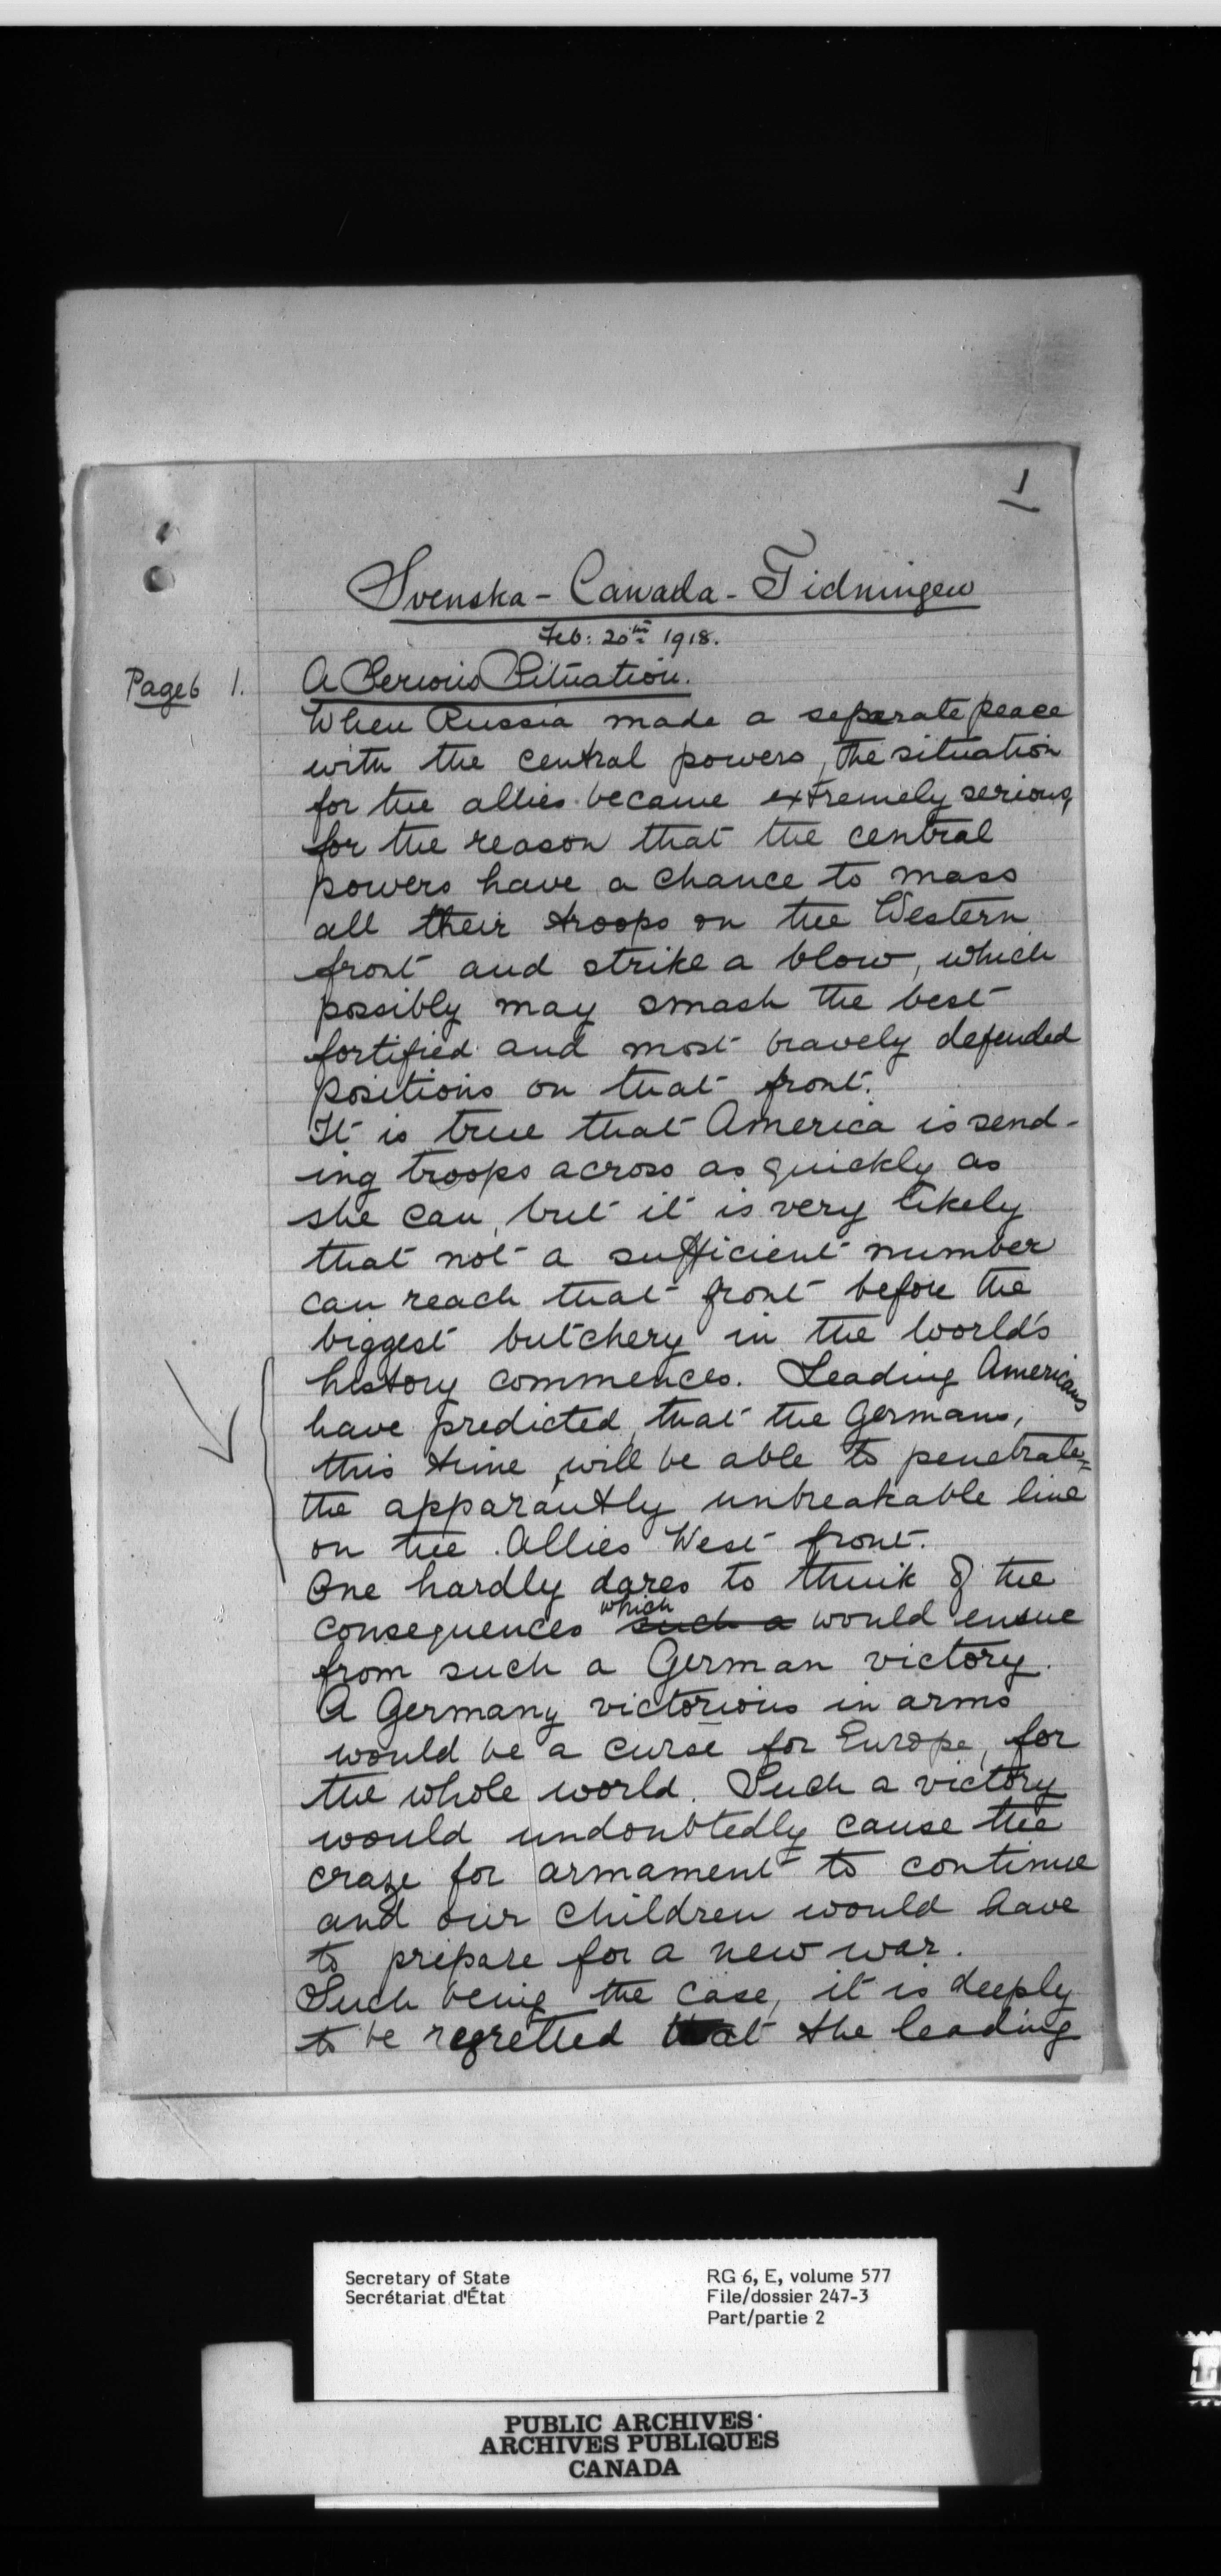 1
Svenska - Canada - Tidningen
Feb: 20th 1918.
Page 6 1. A Serious Situation.
When Russia made a separate peace
with the central powers, the situation
for the allies became extremely serious,
for the reason that the central
powers have a chance to mass
all their troops on the Western
front and strike a blow, which
possibly may smash the best
fortified and most bravely defended
positions on that front.
It is true that America is send-
ing troops across as quickly as
she can, but it is very likely
that not a sufficient number
can reach that front before the
biggest butchery in the world's
history commences. Leading Americans
have predicted, that the Germans,
this time, will be able to penetrate
the apparantly unbreakable line
on the Allies West front.
One hardly dares to think of the
which
consequences such a would ensue
from such a German victory.
A Germany victorious in arms
would be a curse for Europe, for
the whole world. Such a victory
would undoubtedly cause the
craze for armament to continue
and our children would have
to prepare for a new war.
Such being the case, it is deeply
to be regretted that the leading
Secretary of State
Secrétariat d'État
RG 6, E, volume 577
File/dossier 247-3
Part/partie 2
PUBLIC ARCHIVES
ARCHIVES PUBLIQUES
CANADA